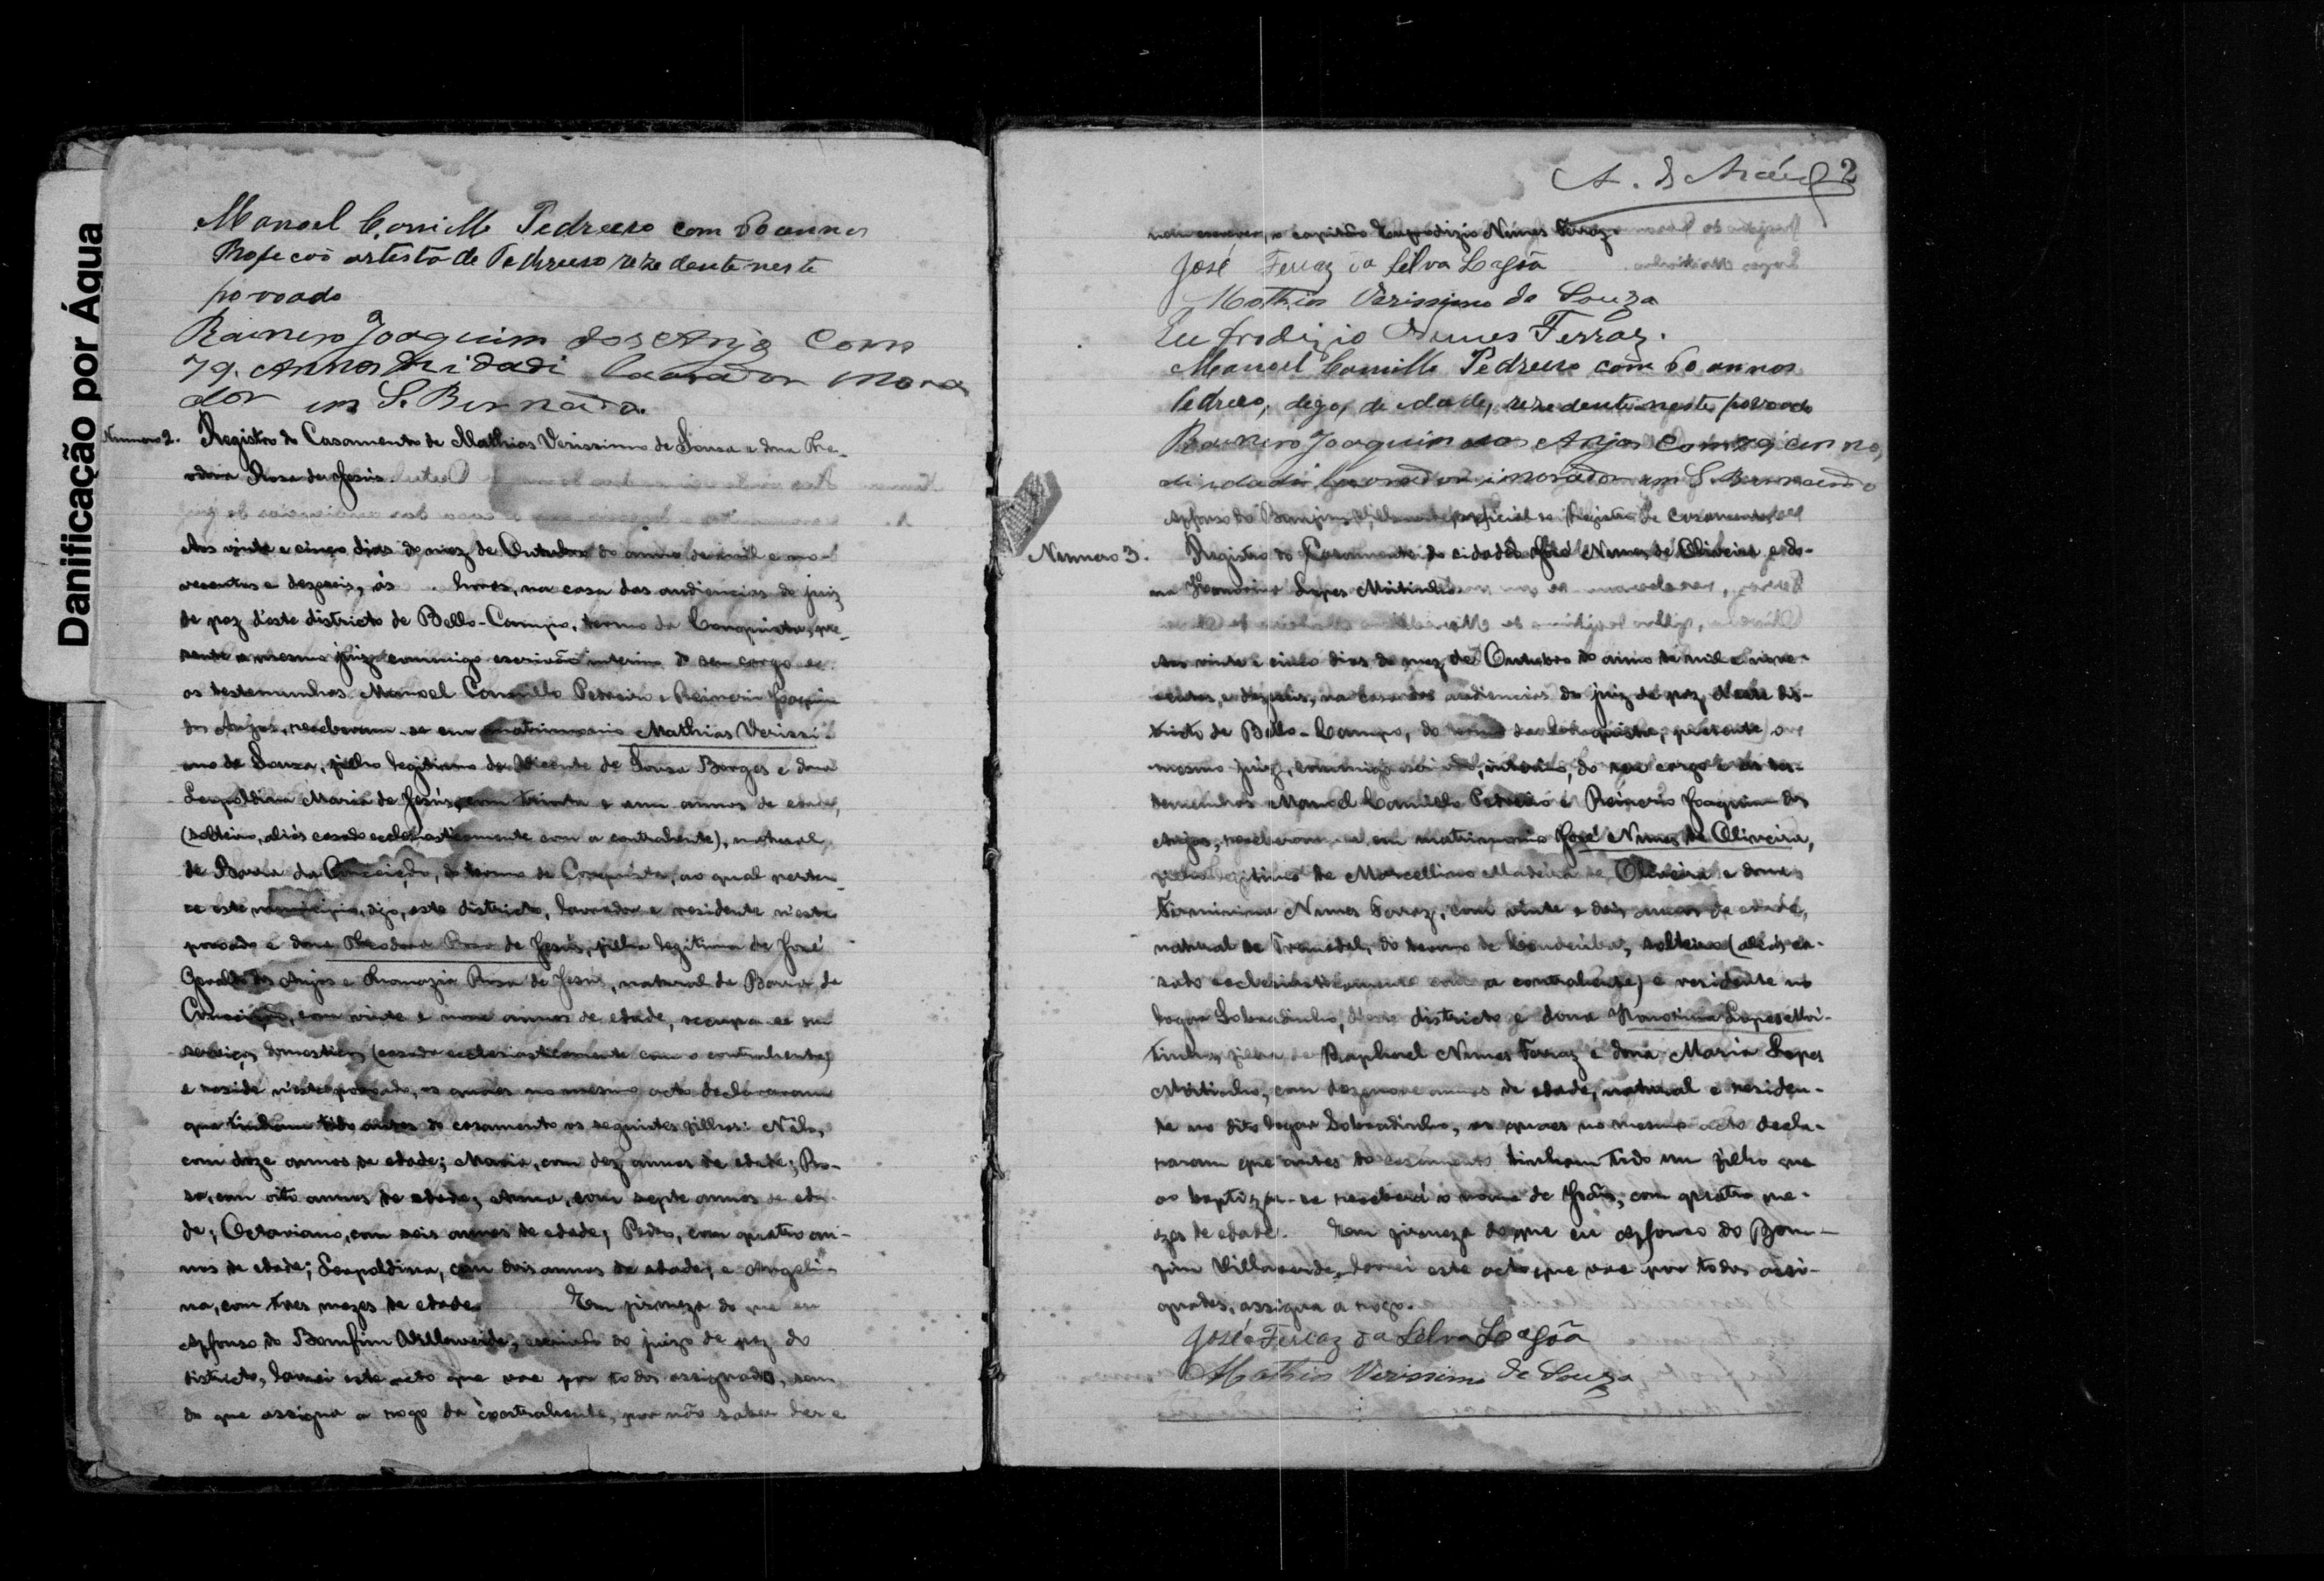 Danificação por Água
Manoel Camillo Pedrero com 60 annos
Profecoõ artista de Pedreuro reze dente neste
povoado
Rainero Joaquim dos Anjo Com
79 Annos di idadi lavrador mora
dor em S. Bernardo.
Numero 2. Registro do Casamento de Mathias Verissimo de Sousa e dona The-
odora Rosa de Jesús.
Aos vinte e cinco dias do mez de Outubro do anno de mil e no-
vecentos e dezeseis, ás horas, na casa das audiencias do juiz
de paz d'este districto de Bello-Campo, termo da Conquista, pre-
sente o mesmo juiz, commigo escrivão interino do seu cargo e
as testemunhas Manoel Camillo Pedreiro e Reinerio Joaquim
dos Anjos, receberam-se em matrimonio Mathias Verissi-
mo de Souza, filho legitimo de Vicente de Sousa Borges e dona
Leopoldina Maria de Jesús, com trinta e um annos de edade,
(solteiro, aliás casado ecclesiasticamente com a contrahente), natural
de Barra da Conceição, do termo de Conquista, ao qual perten-
ce este municipio, digo, este districto, lavrador e residente n'este
povoado e dona Theodora Rosa de Jesús, filha legitima de José
Geraldo dos Anjos e Rosa de Jesus, natural de Barra da
Conceição, com vinte e nove annos de edade, occupa-se em
serviços domesticos (casada ecclesiasticamente com o contrahente)
e reside n'este povoado, os quaes no mesmo acto declararam
que tinham tido antes do casamento os seguintes filhos: Nélo,
com doze annos de edade; Maria, com dez annos de edade; Ro-
sa, com oito annos de edade; Anna, com septe annos de eda-
de; Octaviano, com seis annos de edade; Pedro, com quatro an-
nos de edade; Leopoldina, com dois annos de edade; e Angeli-
na, com tres mezes de edade. Em firmeza do que eu
Affonso do Bomfim Villaverde, escrivão do juizo de paz do
districto, lavrei este acto que vae por todos assignado, sen-
do que assigna a rogo da contrahente, por não saber ler e
2
nem escrever, o capitão Eufrodizio Nunes Ferraz
José Ferraz da Silva Lagôa
Mathias Verissimo de Souza
Eufrodizio Nunes Ferraz.
Manoel Camillo Pedreuro com 60 annos
Pedrero, digo, de edade, reze dente neste povoado
Rainero Joaquim dos Anjos Com 79 anno,
di idadi lavrador morador em S. Bernardo
Affonso do Bomfim Villaverde, official do Registro de Casamentos
Numero 3. Registro do Casamento do cidadão José Nunes de Oliveira e do-
na Honorina Lopes Moitinho.
Aos vinte e cinco dias do mez de Outubro do anno de mil e nove-
centos e dezeseis, na casa das audiencias do juiz de paz deste dis-
tricto de Bello-Campo, do termo da Conquista, presente o
mesmo juiz, commigo escrivão, interino, do seu cargo e as tes-
temunhas Manoel Camillo Pedreiro e Reinerio Joaquim dos
Anjos, receberam-se em matrimonio José Nunes de Oliveira,
filho legitimo de Marcellino Madeira de Oliveira e dona
Firminina Nunes Ferraz, com vinte e dois annos de edade,
natural de Tremedal, do termo de Condeúba, solteiro (aliás ca-
sado ecclesiasticamente com a contrahente) e residente no
logar Sobradinho, d'este districto e dona Honorina Lopes Moi-
tinho, filha de Raphael Nunes Ferraz e dona Maria Lopes
Moitinho, com dezenove annos de edade, natural e residen-
te no dito logar Sobradinho, os quaes no mesmo acto decla-
raram que antes do casamento tinham tido um filho que
ao baptizar-se receberá o nome de João, com quatro me-
zes de edade. Em firmeza do que eu Affonso do Bom-
fim Villaverde, lavrei este acto que vae por todos assi-
gnados, assigna a rogo.
José Ferraz da Silva Lagôa
Mathias Verissimo de Souza